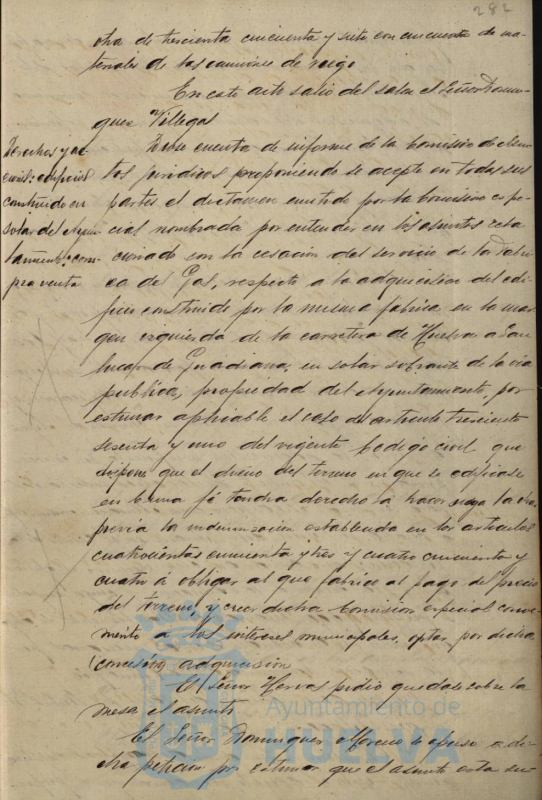 282
otra de trescienta cincuenta y siete con cincuenta de ma-
teriales de los camiones de riego
En este acto salio del salon el Señor Domin-
guez Villegas
Derechos y ac-
ciones: edificio
construido en
solar del Ayun-
tamiento: com-
pra venta
Diose cuenta de informe de la Comisión de Asun-
tos juridicos proponiendo se acepte en todas sus
partes el dictamen emitido por la Comision espe-
cial nombrada por entender en los asuntos rela
cionado con la cesación del servicio de la Fabri-
ca del Gas, respecto a la adquicisión del edi-
ficio construido por la misma fabrica en la mar-
gen izquierda de la carretera de Huelva a San
lucar de Guadiana, en solar sobrante de la via
publica, propiedad del Ayuntamiento, por
estimar aplicable el caso del articulo trescientos
sesenta y uno del vigente Codigo civil que
dispone que el dueño del terreno en que se edificase
en buena fé tendra derecho a hacer suya la obra
previa la indemnización establecida en los articulos
cuatrocientos cincuenta y tres y cuatro cincuenta y
cuatro á obligar al que fabricó al pago del precio
del terreno, y creer dicha Comisión especial conve-
niente a los intereses municipales, optar por dicha
adquisición
El Señor Hervas pidio quedase sobre la
mesa el asunto
El Señor Dominguez Moreno se opuso a di-
cha peticion por estimar que el asunto esta su-
Ayuntamiento de
HUELVA